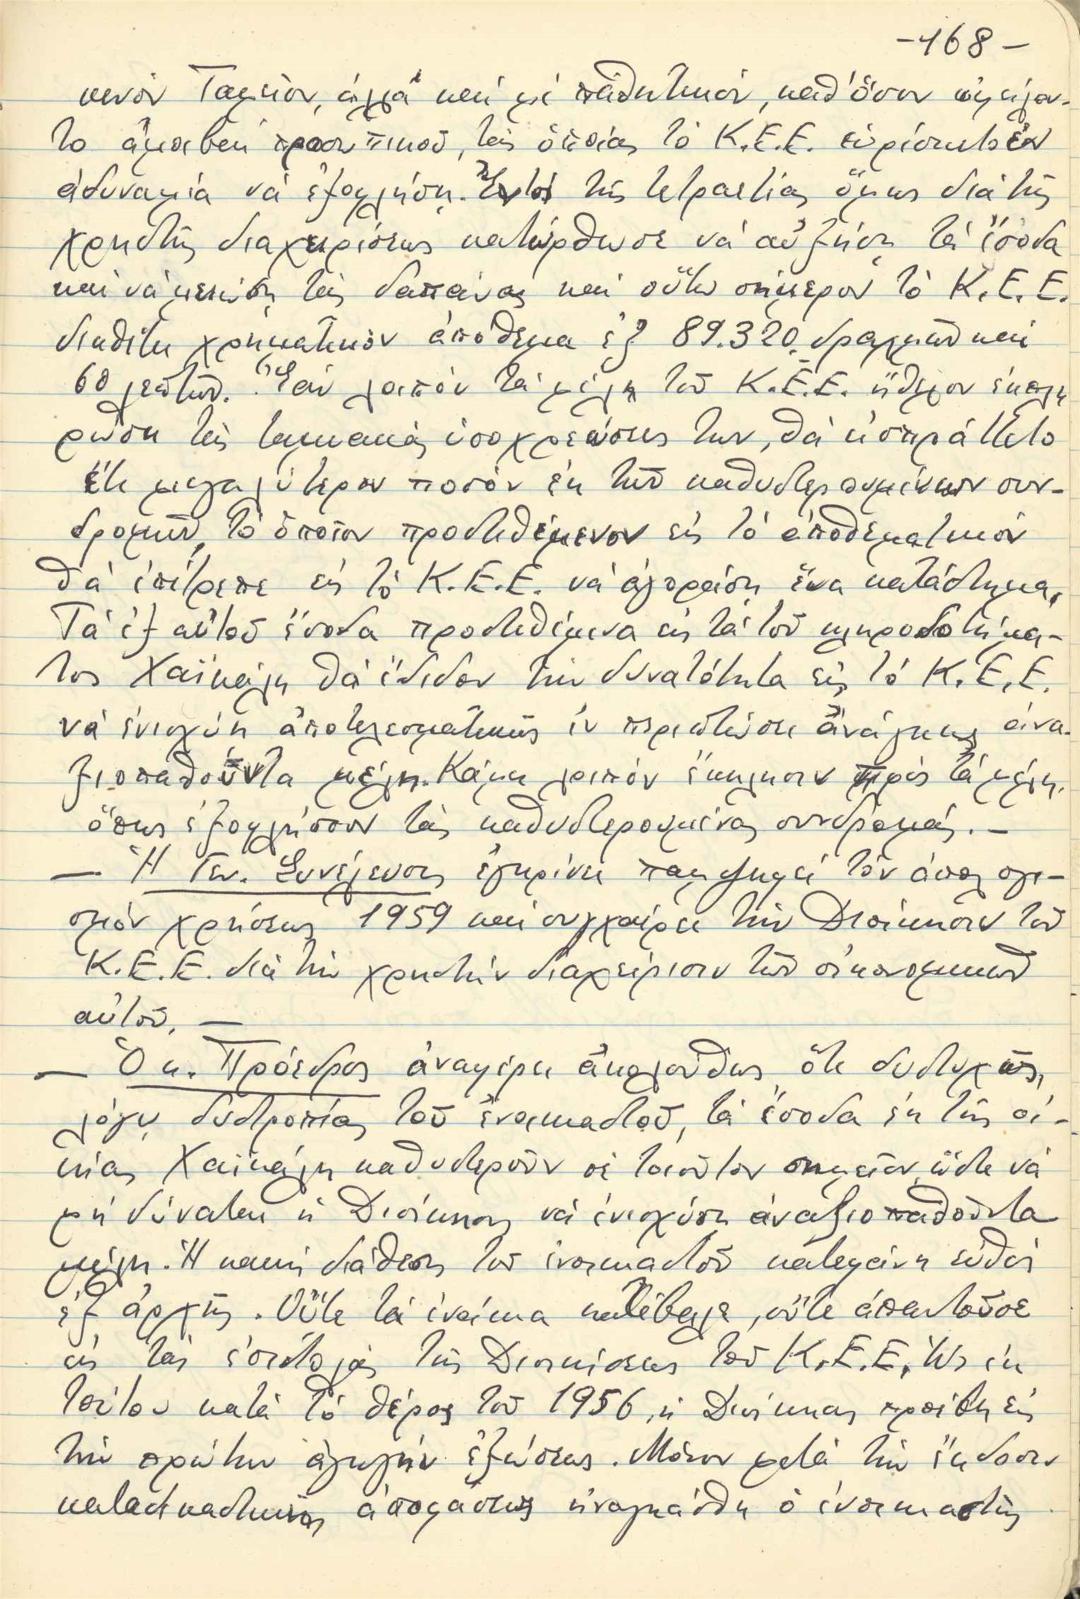 -168-
κενὸν Ταμεῖον, ἀλλὰ καὶ μὲ παθητικόν, καθ' ὅσον ὠφείλον-
το ἀμοιβαὶ προσωπικοῦ, τὰς ὁποίας τὸ Κ.Ε.Ε. εὑρίσκετο ἐν
ἀδυναμίᾳ νὰ ἐξοφλήσῃ. Ἐντὸς τῆς τετραετίας ὅμως διὰ τῆς
χρηστῆς διαχειρίσεως κατώρθωσε νὰ αὐξήσῃ τὰ ἔσοδα
καὶ νὰ μειώσῃ τὰς δαπάνας καὶ οὕτω σήμερον τὸ Κ.Ε.Ε.
διαθέτει χρηματικὸν ἀπόθεμα ἐξ 89.320 δραχμῶν καὶ
60 λεπτῶν. Ἐὰν λοιπὸν τὰ μέλη τοῦ Κ.Ε.Ε. ἤθελον ἐκπλη
ρώσῃ τὰς ταμιακὰς ὑποχρεώσεις των, θὰ εἰσπράττετο
ἔτι μεγαλύτερον ποσὸν ἐκ τῶν καθυστερουμένων συν-
δρομῶν, τὸ ὁποῖον προστιθέμενον εἰς τὸ ἀποθεματικὸν
θὰ ἐπέτρεπε εἰς τὸ Κ.Ε.Ε. νὰ ἀγοράσῃ ἕνα κατάστημα.
Τὰ ἐξ αὐτοῦ ἔσοδα προστιθέμενα εἰς τὰ τοῦ κληροδοτήμα-
τος Χαϊκάλη θὰ ἔδιδον τὴν δυνατότητα εἰς τὸ Κ.Ε.Ε.
νὰ ἐνισχύῃ ἀποτελεσματικῶς ἐν περιπτώσει ἀνάγκης ἀνα-
ξιοπαθοῦντα μέλη. Κάμει λοιπὸν ἔκκλησιν πρὸς τὰ μέλη,
ὅπως ἐξοφλήσουν τὰς καθυστερουμένας συνδρομάς. —
— Ἡ Γεν. Συνέλευσις ἐγκρίνει παμψηφεὶ τὸν ἀπολογι-
σμὸν χρήσεως 1959 καὶ συγχαίρει τὴν Διοίκησιν τοῦ
Κ.Ε.Ε. διὰ τὴν χρηστὴν διαχείρισιν τῶν οἰκονομικῶν
αὐτοῦ. —
— Ὁ κ. Πρόεδρος ἀναφέρει ἀκολούθως ὅτι δυστυχῶς,
λόγῳ δυστροπίας τοῦ ἐνοικιαστοῦ, τὰ ἔσοδα ἐκ τῆς οἰ-
κίας Χαϊκάλη καθυστεροῦν σὲ τοιοῦτον σημεῖον, ὥστε νὰ
μὴ δύναται ἡ Διοίκησις νὰ ἐνισχύσῃ ἀναξιοπαθοῦντα
μέλη. Ἡ κακὴ διάθεσις τοῦ ἐνοικιαστοῦ κατεφάνη εὐθὺς
ἐξ ἀρχῆς. Οὔτε τὰ ἐνοίκια κατέβαλε, οὔτε ἀπαντοῦσε
εἰς τὰς ἐπιστολὰς τῆς Διοικήσεως τοῦ Κ.Ε.Ε. Ὡς ἐκ
τούτου κατὰ τὸ θέρος τοῦ 1956, ἡ Διοίκησις προέβη εἰς
τὴν πρώτην ἀγωγὴν ἐξώσεως. Μόνον μετὰ τὴν ἔκδοσιν
καταδικαστικῆς ἀποφάσεως ἠναγκάσθη ὁ ἐνοικιαστὴς